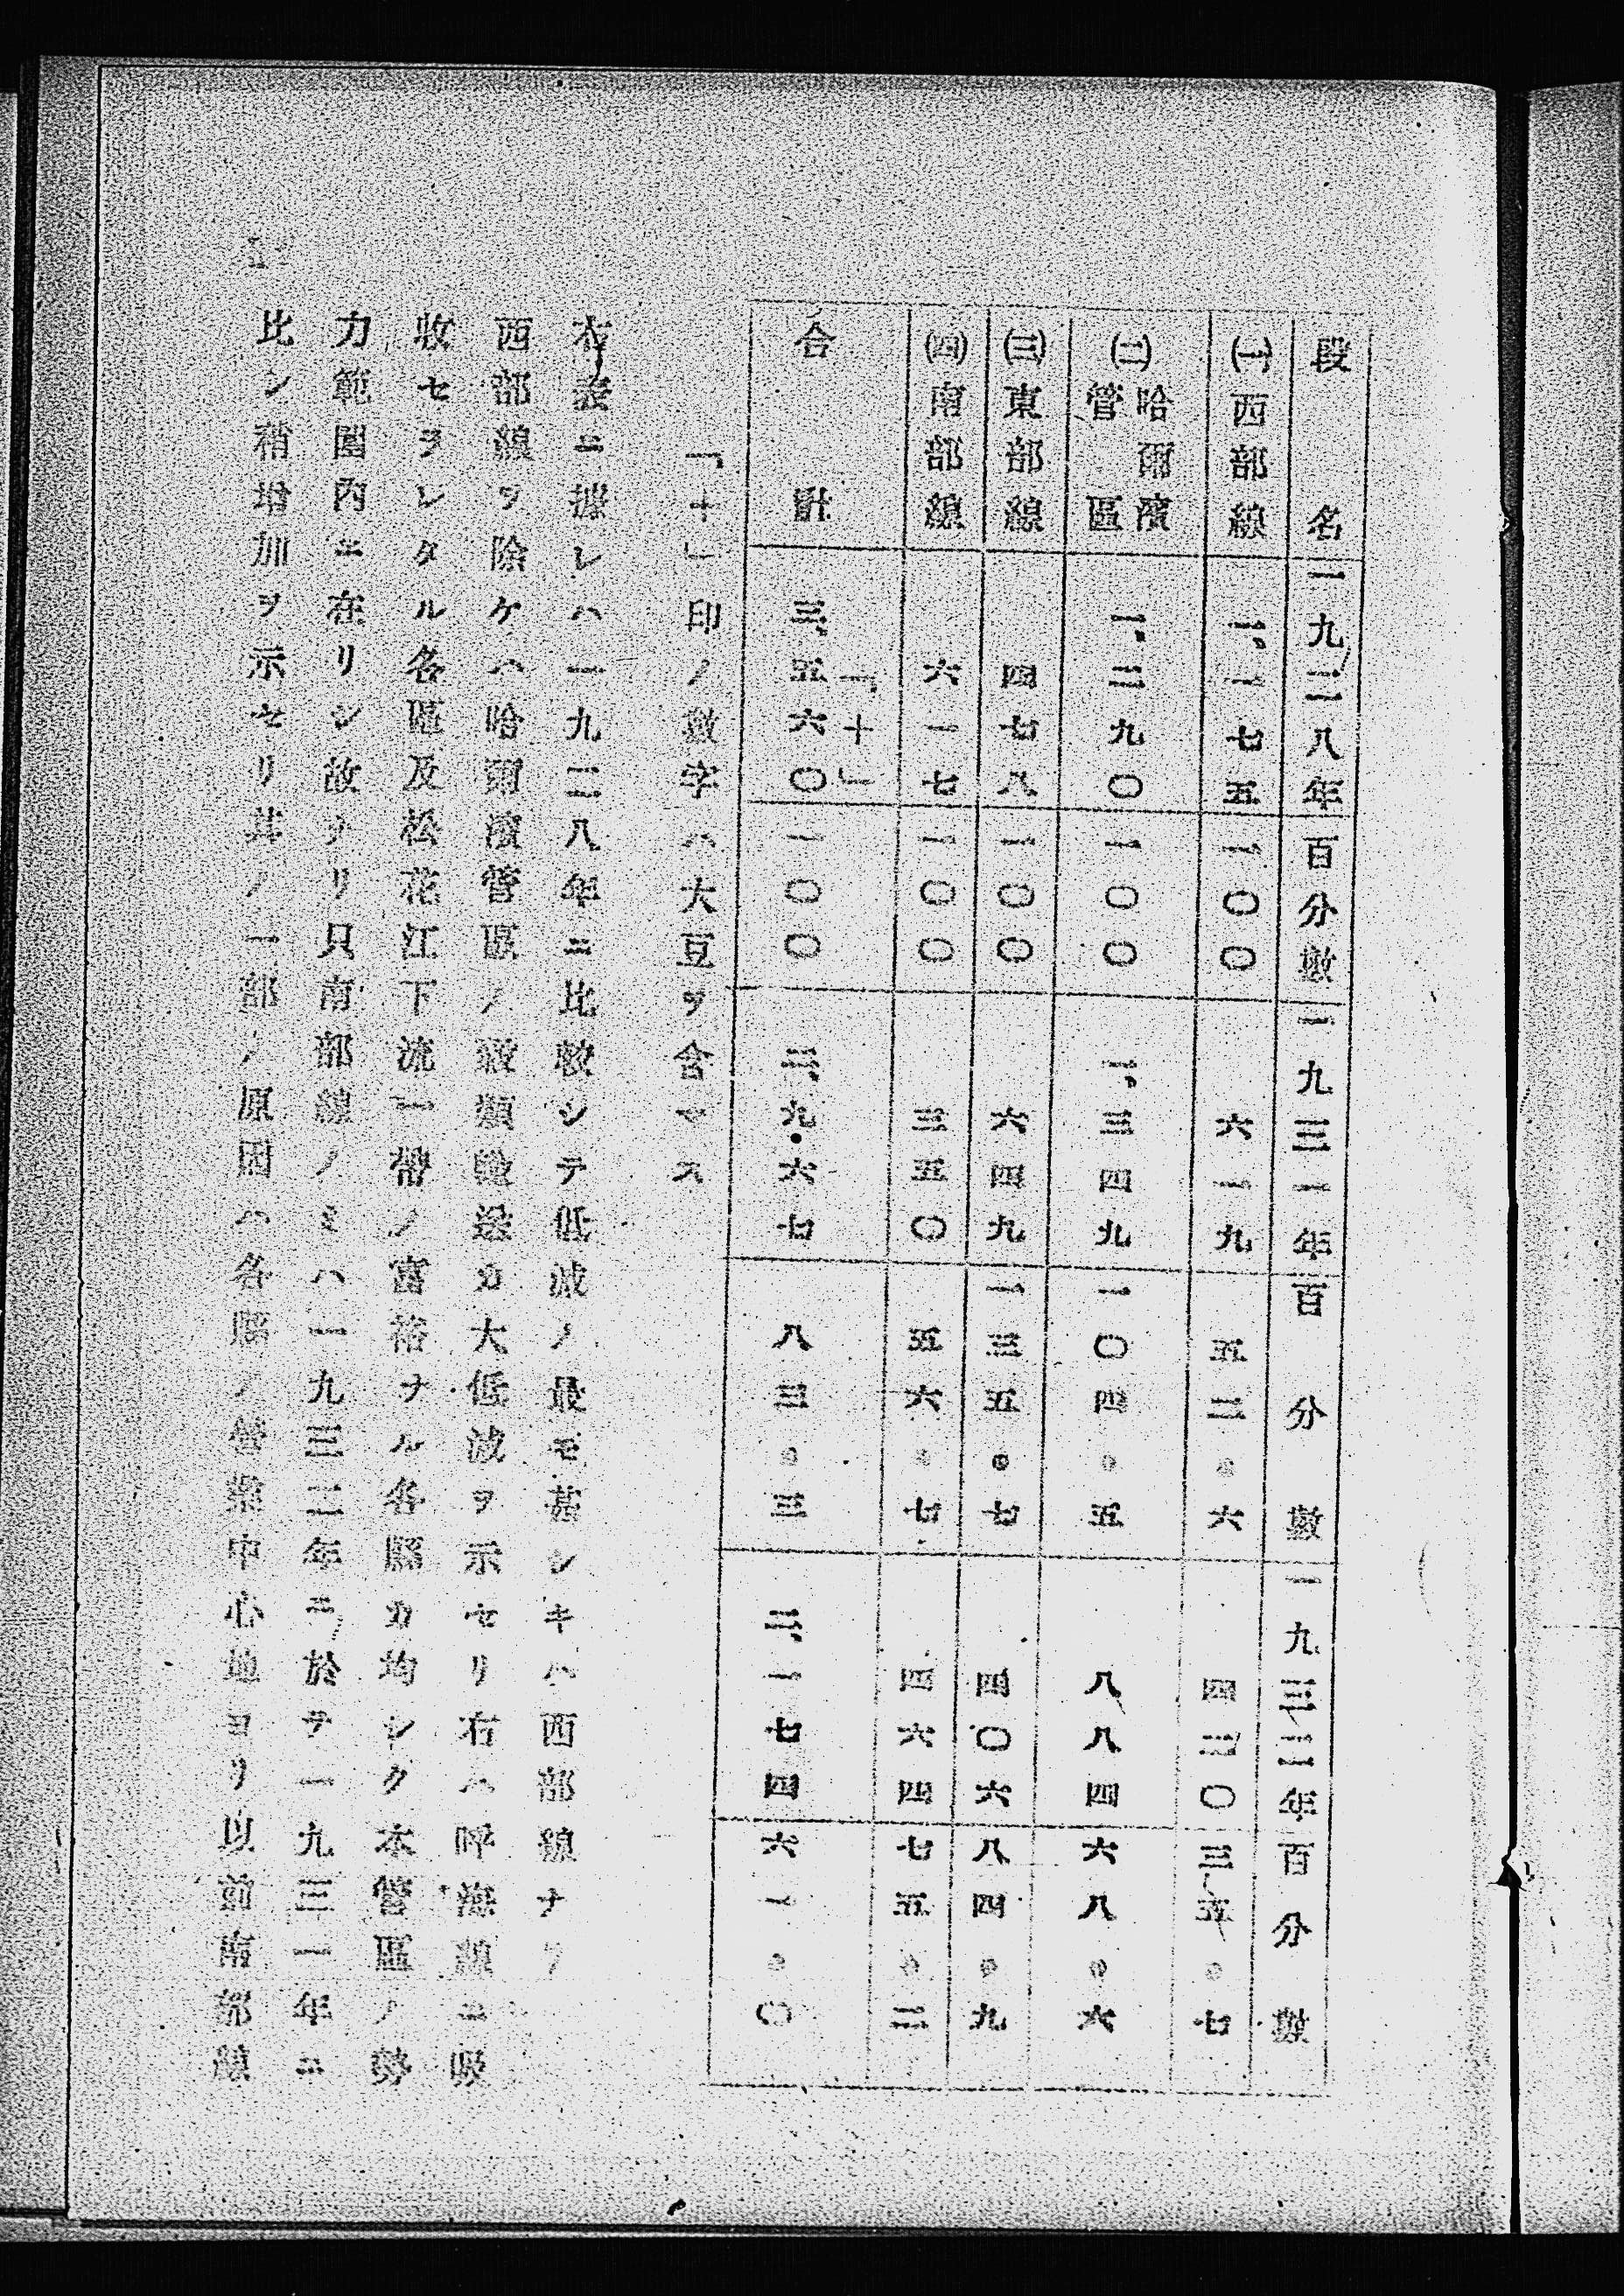 段名 一九二八年 百分數 一九三一年 百分數 一九三二年 百分數
㈠西部線 一、一七五 一〇〇 六一九 五二。六 四二〇 三五。七
㈡哈爾濱管區 一、二九〇 一〇〇 一、三四九 一〇四。五 八八四 六八。六
㈢東部線 四七八 一〇〇 六四九 一三五。七 四〇六 八四。九
㈣南部線 六一七 一〇〇 三五〇 五六。七 四六四 七五。二
合計 「十」三、五六〇 一〇〇 二、九六七 八三。三 二、一七四 六一。〇
「十」印ノ數字ハ大豆ヲ含マス
右表ニ據レハ一九二八年ニ比較シテ低減ノ最モ甚シキハ西部線ナリ
西部線ヲ除ケハ哈爾濱管區ノ穀類輸送カ大低減ヲ示セリ右ハ呼海線ニ吸
收セラレタル各區及松花江下流一帶ノ富裕ナル各縣カ均シク本管區ノ勢
力範圍內ニ在リシ故ナリ只南部線ノミハ一九三二年ニ於テ一九三一年ニ
比シ稍增加ヲ示セリ其ノ一部ノ原因ハ各縣ノ營業中心地ヨリ以前南部線